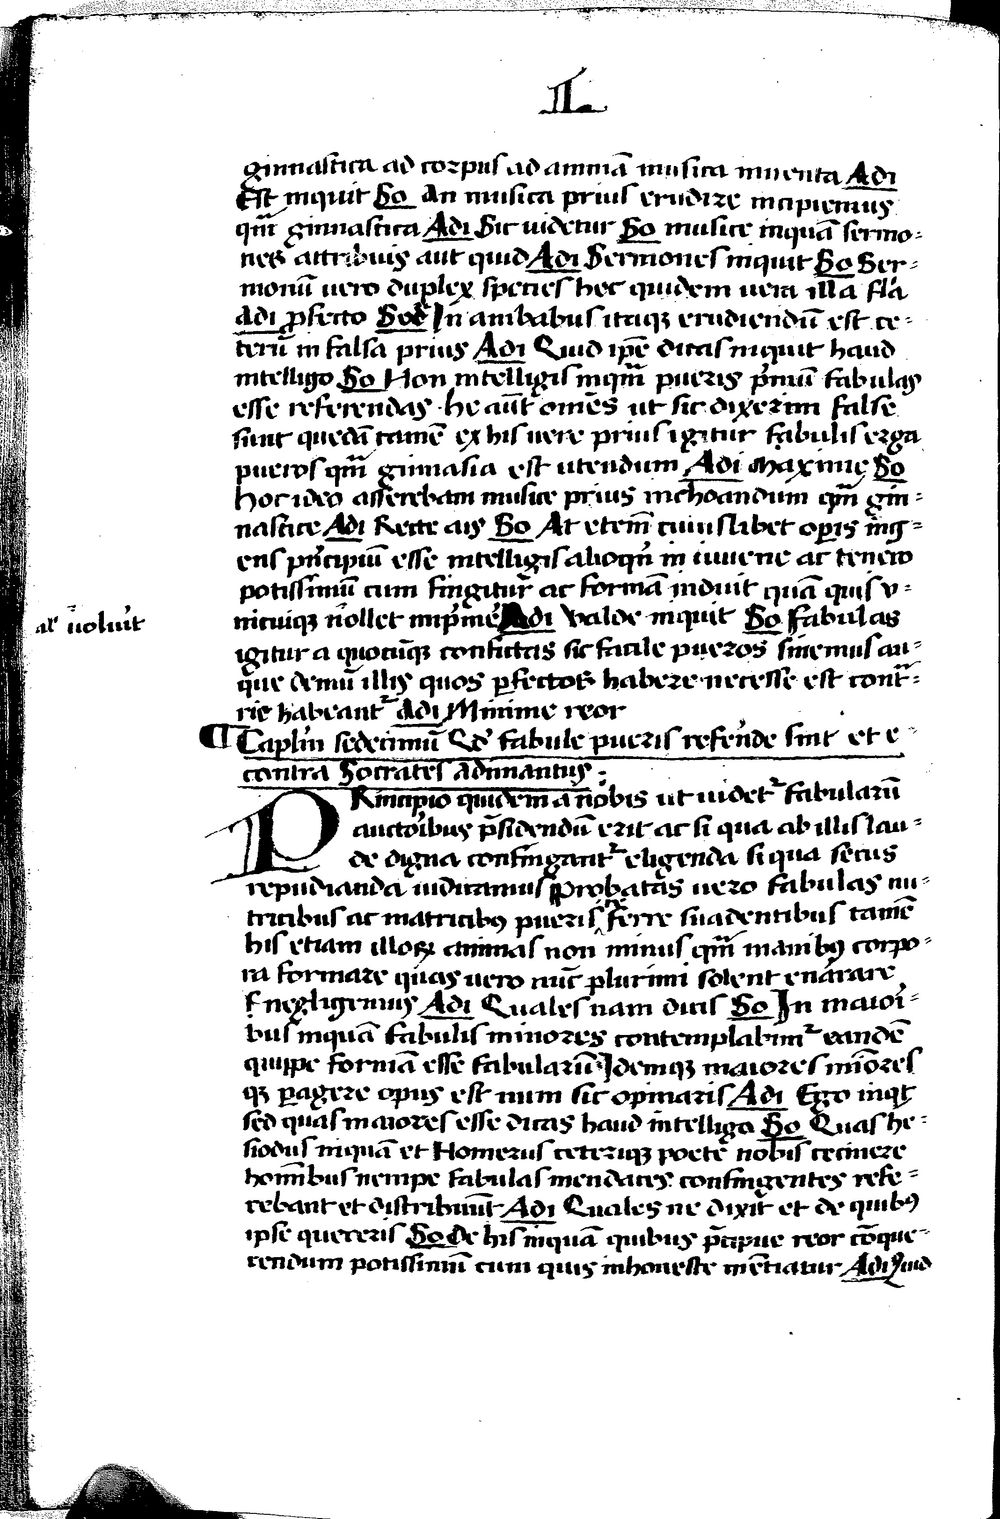 II
ginnastica ad corpus ad animā musica inuenta Adi
Est inquit So An musica prius erudire incipiemus
qm̄ ginnastica Adi Sic uidetur So musice inquā sermo-
nes attribuis aut quid Adi Sermones inquit So Ser-
monū uero duplex species hec quidem uera illa fl̄a
Adi ꝓfecto Soc̄ In ambabus itaqꝫ erudiendū est ce-
terū in falsa prius Adi Quid ip̄e dicas inquit haud
intelligo So Non intelligis inqm̄ pueris p̄mū fabulas
esse referendas he aūt om̄es ut sic dixerim false
sunt quedā tamē ex his uere prius igitur fabulis erga
pueros qm̄ ginnasia est utendum Adi Maxime So
hoc ideo asserebam musice prius inchoandum qm̄ gin-
nastice Adi Recte ais So At etem̄ cuiuslibet oꝑis ing-
ens pn̄cipiū esse intelligis alioqn̄ in iuuene ac tenero
potissimū cum fingitur ac formā induit quā quis v-
al' ūoluīt
nicuiqꝫ n̄ollet imp̄mē Adi valde inquit So Fabulas
igitur a quocūqꝫ confictas sic facile pueros sinemus au-
que demū illis quos ꝑfectos habere necesse est contr̄-
rie habeantr Adi Minime reor
¶ Capl̄m sedecimū Qd̄ fabule pueris refen̄de sint et e-
contra Socrates adimantus:
PRincipio quidem a nobis ut uidetr fabularū
auctōibus p̄sidendū erit ac si qua ab illis lau-
de digna confingantr eligenda si qua secus
repudianda iudicamus Probatas uero fabulas nu-
tricibus ac matricibꝰ pueris ferre suadentibus tamē
his etiam illoꝝ animas non minus qm̄ manibꝰ corpo-
ra formare quas uero nūc plurimi solent enarrare
negligemus Adi Quales nam dicis So In maiori-
bus inquā fabulis minores contemplabimr eandē
quippe formā esse fabulariū Idemqꝫ maiores miōres
qꝫ ꝑagere opus est num sic opinaris Adi Ego inqt
sed quas maiores esse dicas haud intelligo So Quas he-
siodus inquā et Homerus ceteriqꝫ poete nobis cecinere
homībus nempe fabulas mendaces confingentes refe-
rebant et distribuūt Adi Quales ne dixit et de quibꝰ
ipse quereris So De his inquā quibus p̄cipue reor cōque-
rendum potissimū cum quis inhoneste mētiatur Adi Quid